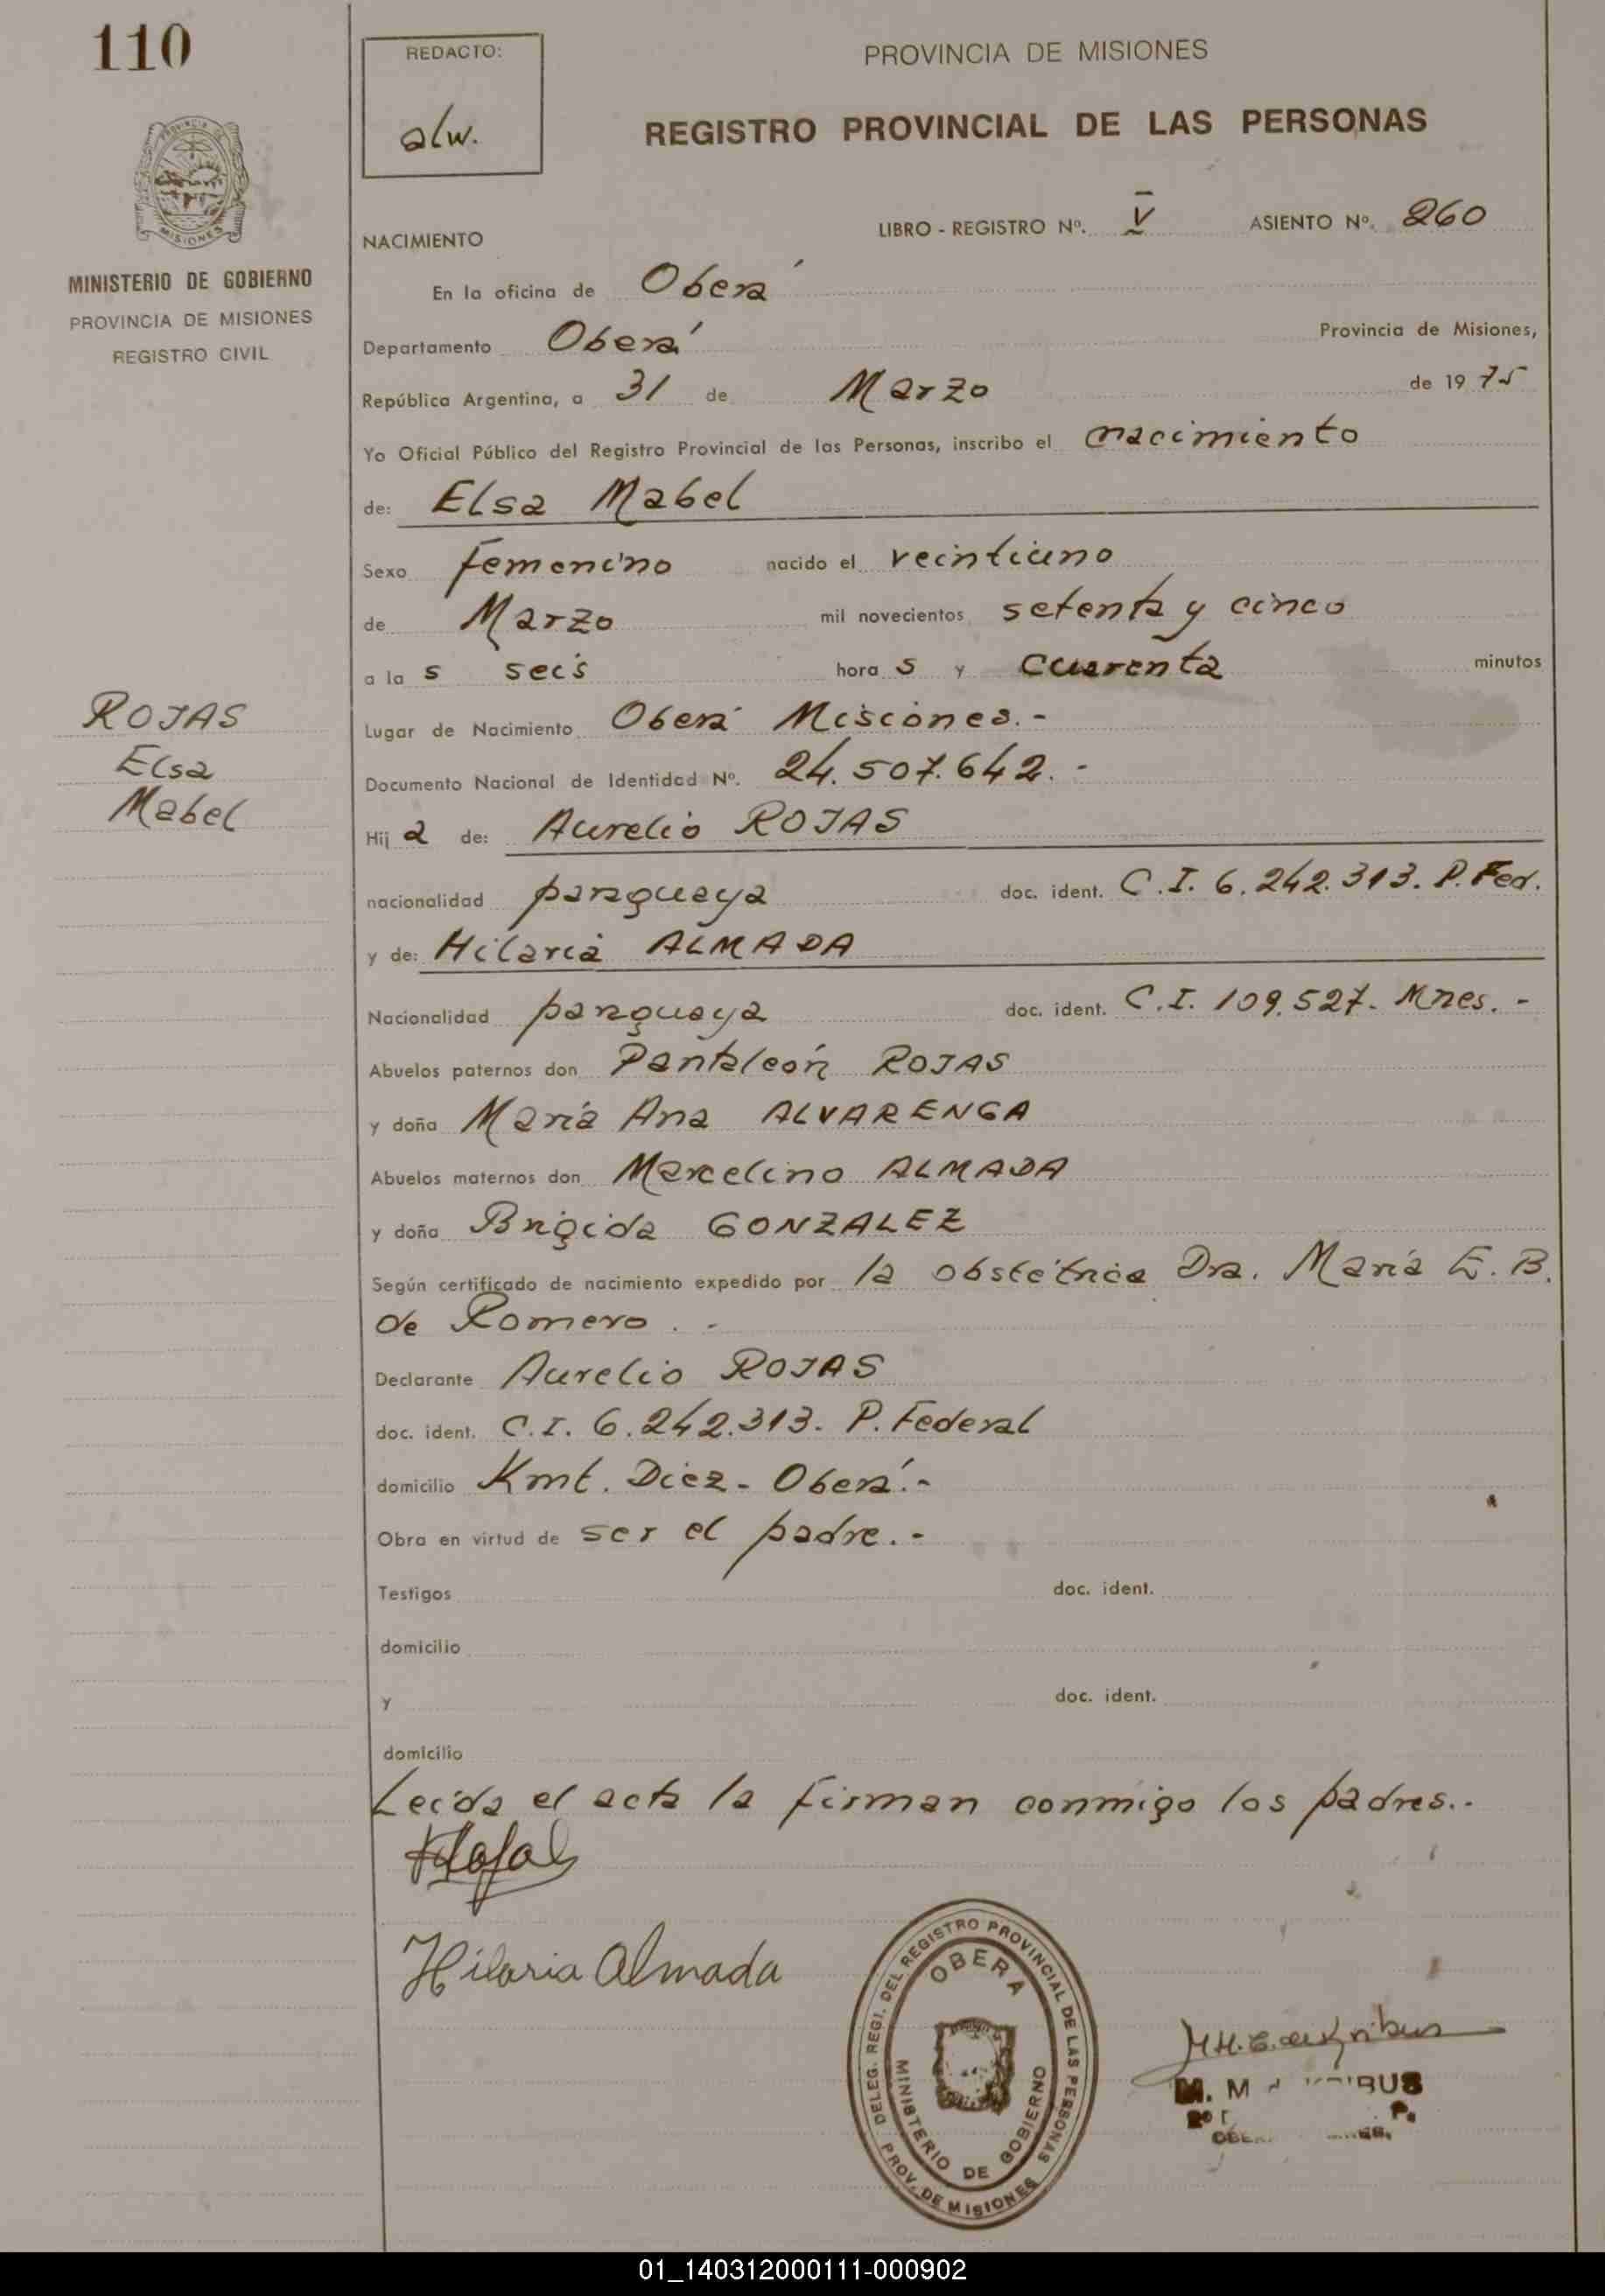 110
REDACTO:
alw.
PROVINCIA DE MISIONES
REGISTRO PROVINCIAL DE LAS PERSONAS
PROVINCIA DE
MISIONES
MINISTERIO DE GOBIERNO
PROVINCIA DE MISIONES
REGISTRO CIVIL
NACIMIENTO
LIBRO - REGISTRO Nº. V ASIENTO Nº. 260
En la oficina de Oberá
Departamento Oberá Provincia de Misiones,
República Argentina, a 31 de Marzo de 1975
Yo Oficial Público del Registro Provincial de las Personas, inscribo el nacimiento
de: Elsa Mabel
Sexo femenino nacido el veintiuno
de Marzo mil novecientos setenta y cinco
a la s seis hora s y cuarenta minutos
Lugar de Nacimiento Oberá Misiones.-
Documento Nacional de Identidad Nº. 24.507.642.-
ROJAS
Elsa
Mabel
Hij a de: Aurelio ROJAS
nacionalidad paraguaya doc. ident. C.I. 6.242.313. P. Fed.
y de: Hilaria ALMADA
Nacionalidad paraguaya doc. ident. C.I. 109.527. Mnes.-
Abuelos paternos don Pantaleón ROJAS
y doña María Ana ALVARENGA
Abuelos maternos don Marcelino ALMADA
y doña Brígida GONZALEZ
Según certificado de nacimiento expedido por la obstétrica Dra. María E. B.
de Romero.-
Declarante Aurelio ROJAS
doc. ident. C.I. 6.242.313. P. Federal
domicilio Kmt. Diez - Oberá.-
Obra en virtud de ser el padre.-
Testigos doc. ident.
domicilio
y doc. ident.
domicilio
Leída el acta la firman conmigo los padres.-
Hilaria Almada
DELEG. REGI. DEL REGISTRO PROVINCIAL DE LAS PERSONAS
OBERA
MINISTERIO DE GOBIERNO
PROV. DE MISIONES
01_140312000111-000902